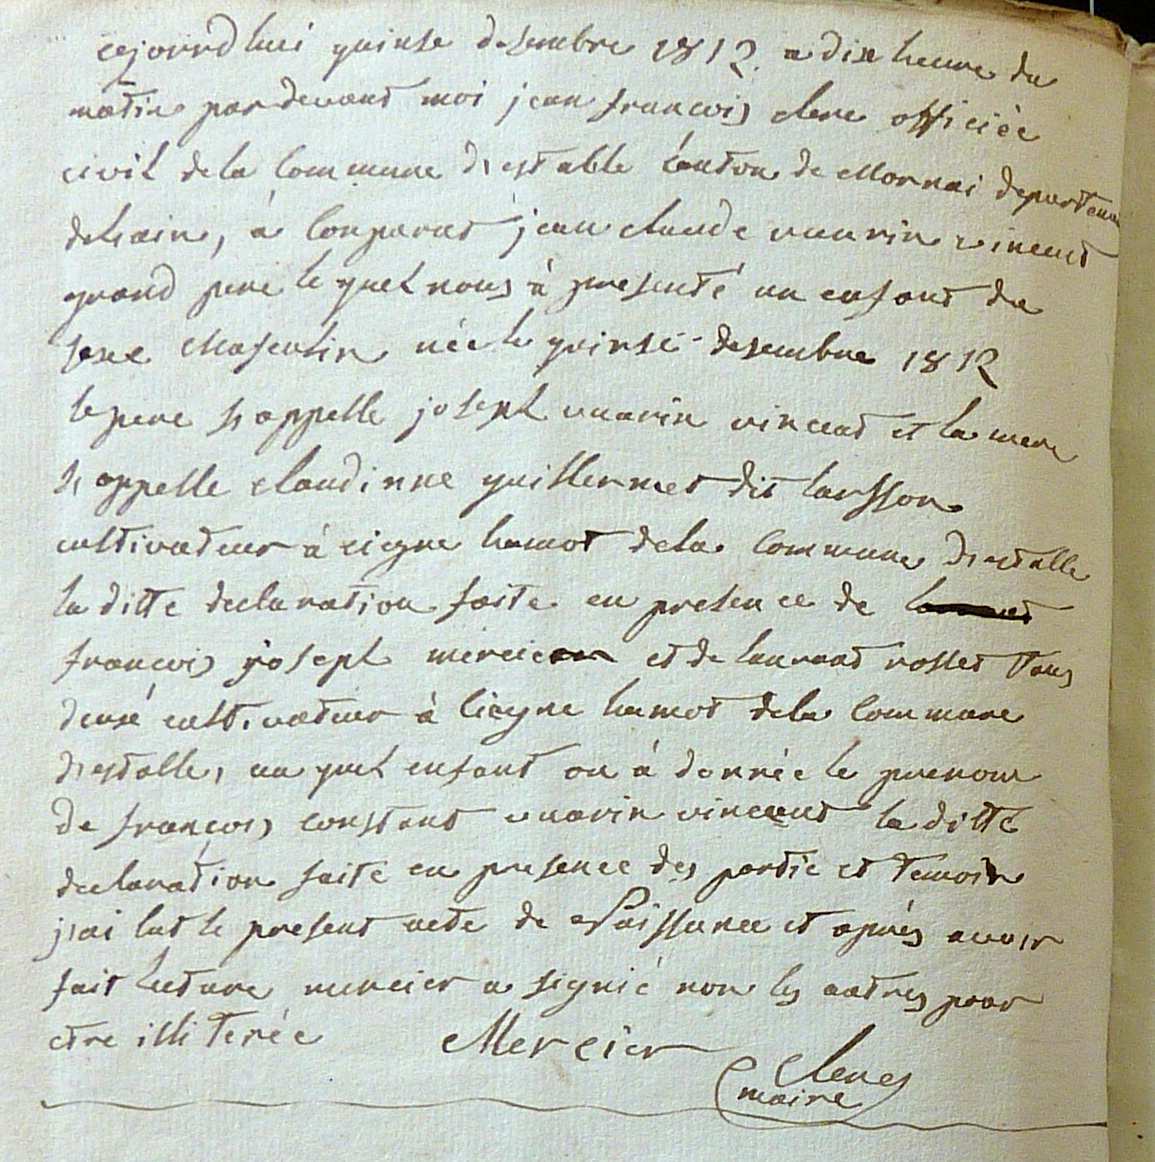 cejourdhui quinse desembre 1812. a dix heure du
matin pardevant moi jean francois clerc officiée
civil dela Commune d'estable Canton de Mornai departem
delain, à Comparut jean claude vuarin vincent
grand pere le quel nous à presenté un enfant du
sexe Masculin née le quinse desembre 1812
le pere s'appelle joseph vuarin vincent et la mere
s'appelle claudinne guillermet dit
cultivateur à ciegne hamot dela Commune destable
la ditte declaration faite en presence de
francois joseph mercier et de laurant rosset tous
deux cultivateur à Ciegne hamot dela Commune
d'estable, au quel enfant on à donnée le prenom
de françois constant vuarin vincent la ditte
declaration faite en presence des partie et temoin
j'ai lut le present acte de Naissance et après avoir
fait lecture mercier a signié non les autres pour
etre illiterée Mercier
clerc
maire